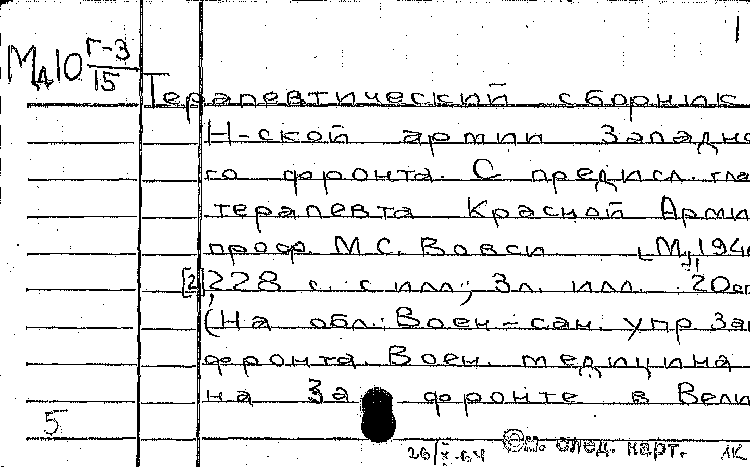 1
МА10 Г-3/15
Терапевтический сборник
Н-ской армии Западно
го фронта. С предисл. гла
терапевта Красной Арми
проф. М.С. Вовси [М.,] 194
[2], 228 с. с илл.; 3 л. илл. 20 см
(На обл.: Воен-сан. упр Зап
фронта. Воен. медицина
на За фронте в Вели
5
26/X-64 См. след. карт. 1К